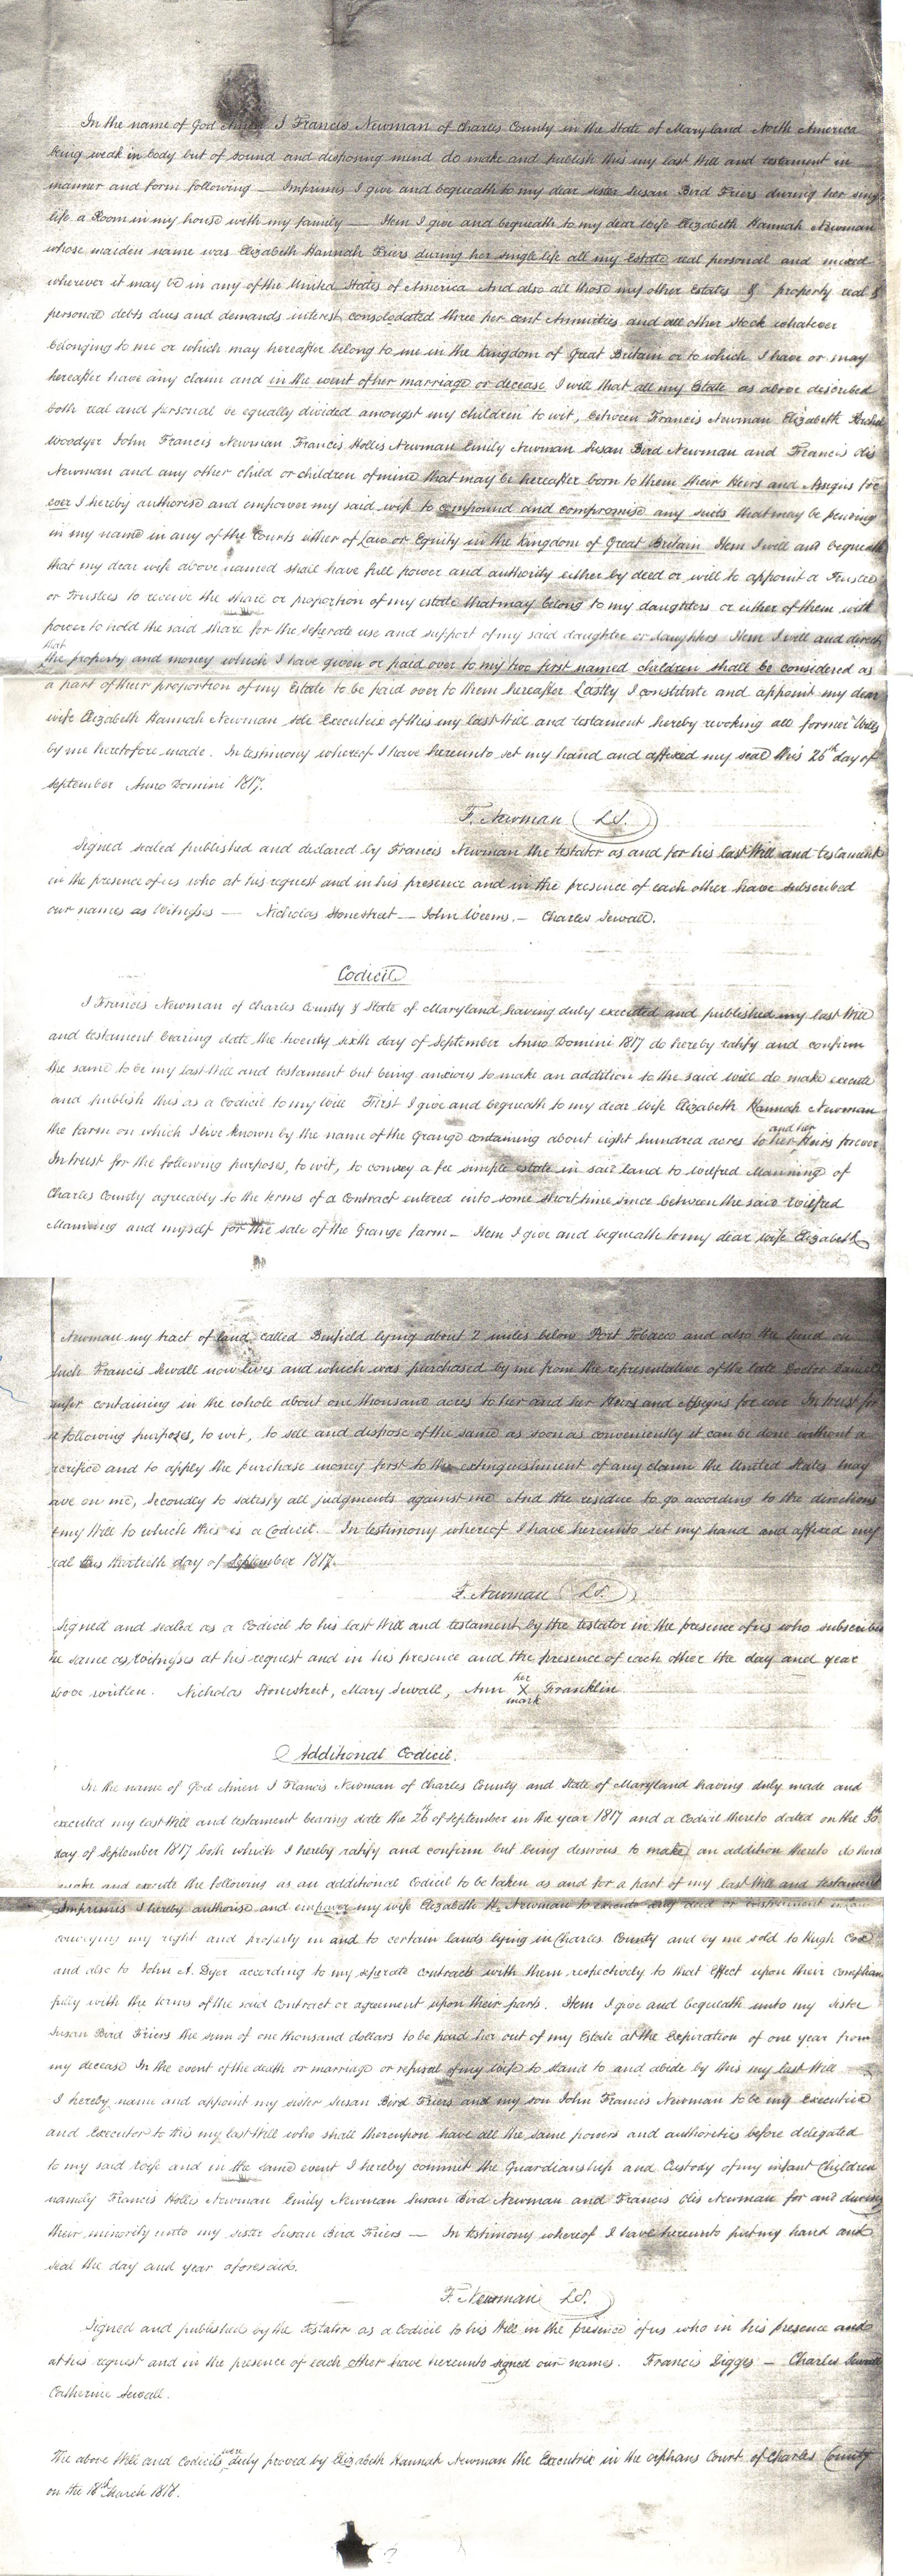 In the name of God Amen I Francis Newman of Charles County in the State of Maryland North America
being weak in body but of sound and disposing mind do make and publish this my last Will and testament in
manner and form following — Imprimis I give and bequeath to my dear sister Susan Bird Friers during her single
life a Room in my house with my family — Item I give and bequeath to my dear wife Elizabeth Hannah Newman
whose maiden name was Elizabeth Hannah Friers during her single life all my Estate real personal and mixed
wherever it may be in any of the United States of America And also all those my other Estates & property real &
personal debts dues and demands interest consolodated three per cent Annuities and all other Stock whatever
belonging to me or which may hereafter belong to me in the Kingdom of Great Britain or to which I have or may
hereafter have any claim and in the event of her marriage or decease I will that all my Estate as above described
both real and personal be equally divided amongst my children to wit, between Francis Newman Elizabeth
Woodyer John Francis Newman Francis Hollis Newman Emily Newman Susan Bird Newman and Francis Otis
Newman and any other child or children of mine that may be hereafter born to them their Heirs and Assigns for
ever I hereby authorise and empower my said wife to compound and compromise any suits that may be pending
in my name in any of the Courts either of Law or Equity in the Kingdom of Great Britain Item I will and bequeath
that my dear wife above named shall have full power and authority either by deed or will to appoint a Trustee
or Trustees to receive the share or proportion of my estate that may belong to my daughters or either of them with
power to hold the said share for the seperate use and support of my said daughter or daughters Item I will and direct
that
the property and money which I have given or paid over to my two first named children shall be considered as
a part of their proportion of my Estate to be paid over to them hereafter Lastly I constitute and appoint my dear
wife Elizabeth Hannah Newman sole Executrix of this my last Will and testament hereby revoking all former Wills
by me heretofore made. In testimony whereof I have hereunto set my hand and affixed my seal this 26th day of
September Anno Domini 1817.
F. Newman L.S.
Signed sealed published and declared by Francis Newman the testator as and for his last Will and testament
in the presence of us who at his request and in his presence and in the presence of each other have subscribed
our names as Witnesses — Nicholas Stonestreet — John Weems. — Charles Sewall.
Codicil
I Francis Newman of Charles County & State of Maryland having duly executed and published my last Will
and testament bearing date the twenty sixth day of September Anno Domini 1817 do hereby ratify and confirm
the same to be my last Will and testament but being anxious to make an addition to the said will do make execute
and publish this as a Codicil to my Will First I give and bequeath to my dear Wife Elizabeth Hannah Newman
and her
the farm on which I live known by the name of the Grange containing about eight hundred acres to her Heirs forever
In trust for the following purposes, to wit, to convey a fee simple estate in said land to Wilfred Manning of
Charles County agreeably to the terms of a Contract entered into some short time since between the said Wilfred
Manning and myself for the sale of the Grange farm — Item I give and bequeath to my dear wife Elizabeth
Newman my tract of land called Benfield lying about 2 miles below Port Tobacco and also the land on
which Francis Sewall now lives and which was purchased by me from the representative of the late Doctor Daniel
containing in the whole about one thousand acres to her and her Heirs and Assigns for ever In trust for
following purposes, to wit, to sell and dispose of the same as soon as conveniently it can be done without a
sacrifice and to apply the purchase money first to the extinguishment of any claim the United States may
have on me, Secondly to satisfy all judgments against me And the residue to go according to the directions
of my Will to which this is a Codicil. In testimony whereof I have hereunto set my hand and affixed my
seal this thirtieth day of September 1817.
F. Newman L.S.
Signed and sealed as a Codicil to his last Will and testament by the testator in the presence of us who subscribed
the same as Witnesses at his request and in his presence and the presence of each other the day and year
above written. Nicholas Stonestreet, Mary Sewall, Ann her X mark Franklin
Additional Codicil.
In the name of God Amen I Francis Newman of Charles County and State of Maryland having duly made and
executed my last Will and testament bearing date the 26th of September in the year 1817 and a Codicil thereto dated on the 30th
day of September 1817 both which I hereby ratify and confirm but being desirous to make an addition thereto do here
make and execute the following as an additional Codicil to be taken as and for a part of my last Will and testament
Imprimis I hereby authorise and empower my wife Elizabeth H. Newman to execute any deed or instrument in
conveying my right and property in and to certain lands lying in Charles County and by me sold to Hugh Cox
and also to John A. Dyer according to my seperate contracts with them respectively to that effect upon their complian
fully with the terms of the said Contract or agreement upon their parts. Item I give and bequeath unto my sister
Susan Bird Friers the sum of one thousand dollars to be paid her out of my Estate at the Expiration of one year from
my decease In the event of the death or marriage or refusal of my Wife to stand to and abide by this my last Will
I hereby name and appoint my sister Susan Bird Friers and my son John Francis Newman to be my Executrix
and Executor to this my last Will who shall thereupon have all the same powers and authorities before delegated
to my said wife and in the same event I hereby commit the Guardianship and Custody of my infant Children
namely Francis Hollis Newman Emily Newman Susan Bird Newman and Francis Otis Newman for and during
their minority unto my sister Susan Bird Friers — In testimony whereof I have hereunto put my hand and
seal the day and year aforesaid.
F. Newman L.S.
Signed and published by the Testator as a Codicil to his Will in the presence of us who in his presence and
at his request and in the presence of each other have hereunto signed our names. Francis Digges — Charles Sewall
Catherine Sewall.
The above Will and Codicils were duly proved by Elizabeth Hannah Newman the Executrix in the Orphans Court of Charles County
on the 18th March 1818.